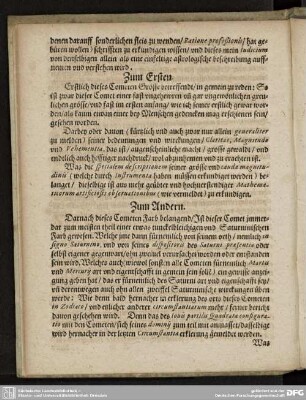 denen darauff sonderlichen fleis zu wenden/ Ratione professionis hat ge-
büren wollen) schrifften zu erkundigen wissen/ und dieses mein Iudicium
von derselbigen allein als eine einfeltige astrologische beschreibung auff-
nemen und verstehen wird.
Zum Ersten
Erstlich dieses Cometen Grösse betreffende/ in gemein zu reden: So
ist zwar dieser Comet einer fast ungeheuren gegen vorgewönlichen grew-
lichen grösse/ und fast im selben anfang/ wie ich seiner erstlich gewar wor-
den/ als kaum etwan einer bey Menschen gedencken mag erschienen sein/
gesehen worden.
Darbey oder davon (kürtzlich und auch zwar nur allein generaliter
zu melden) seiner bedeutungen und wirckungen/
Vehementia, das ist/ augenscheinliche macht/ grosse gewalt/ und
endlich auch hefftiger nachdruck/ wol abzunehmen und zu errechen ist.
Was die specialem descriptionem seiner grösse
(welche durch Instrumenta haben müssen erkundiget werden) be-
langet/ dieselbige ist aus mehr geübter und hocherstendiger Mathema-
ticorum observationibus (wie vermeldet) zu erkundigen.
Zum Andern.
Darnach dieses Cometen Farb belangend/ Ist dieser Comet immer-
dar zum meisten theil einer etwas tunckelbleichigen und Saturninischen
Farb gewesen. Welche jme dann fürnemlich von seinem orth/ nemlich
signo Saturnino, und von seines dispositoris des Saturni praesentia oder
selbst eigener gegenwart/ ohn zweiuel verursachet worden oder entstanden
sein wird. Welches auch/ wiewol sonsten alle Cometen fürnemlich Martis
und Mercurij art und eigenschafft in gemein sein sol/ ein gewisse anzei-
gung geben hat/ das er fürnemlich des Saturni art und eigenschafft sey/
und derentwegen auch ohn allen zweiffel Saturninische wirckungen üben
werde: Wie denn bald hernacher in erklerung des orts dieses Cometen
in Zodiaco, und endlicher anderer circumstantiarum mehr/ seiner bericht
davon gesehehen wird. Denn das
mit den Cometen/ sich seines domini zum teil mit anmasset/ dasselbige
wird hernacher in der letzten Circumstantia erklerung gemeldet werden.
Was